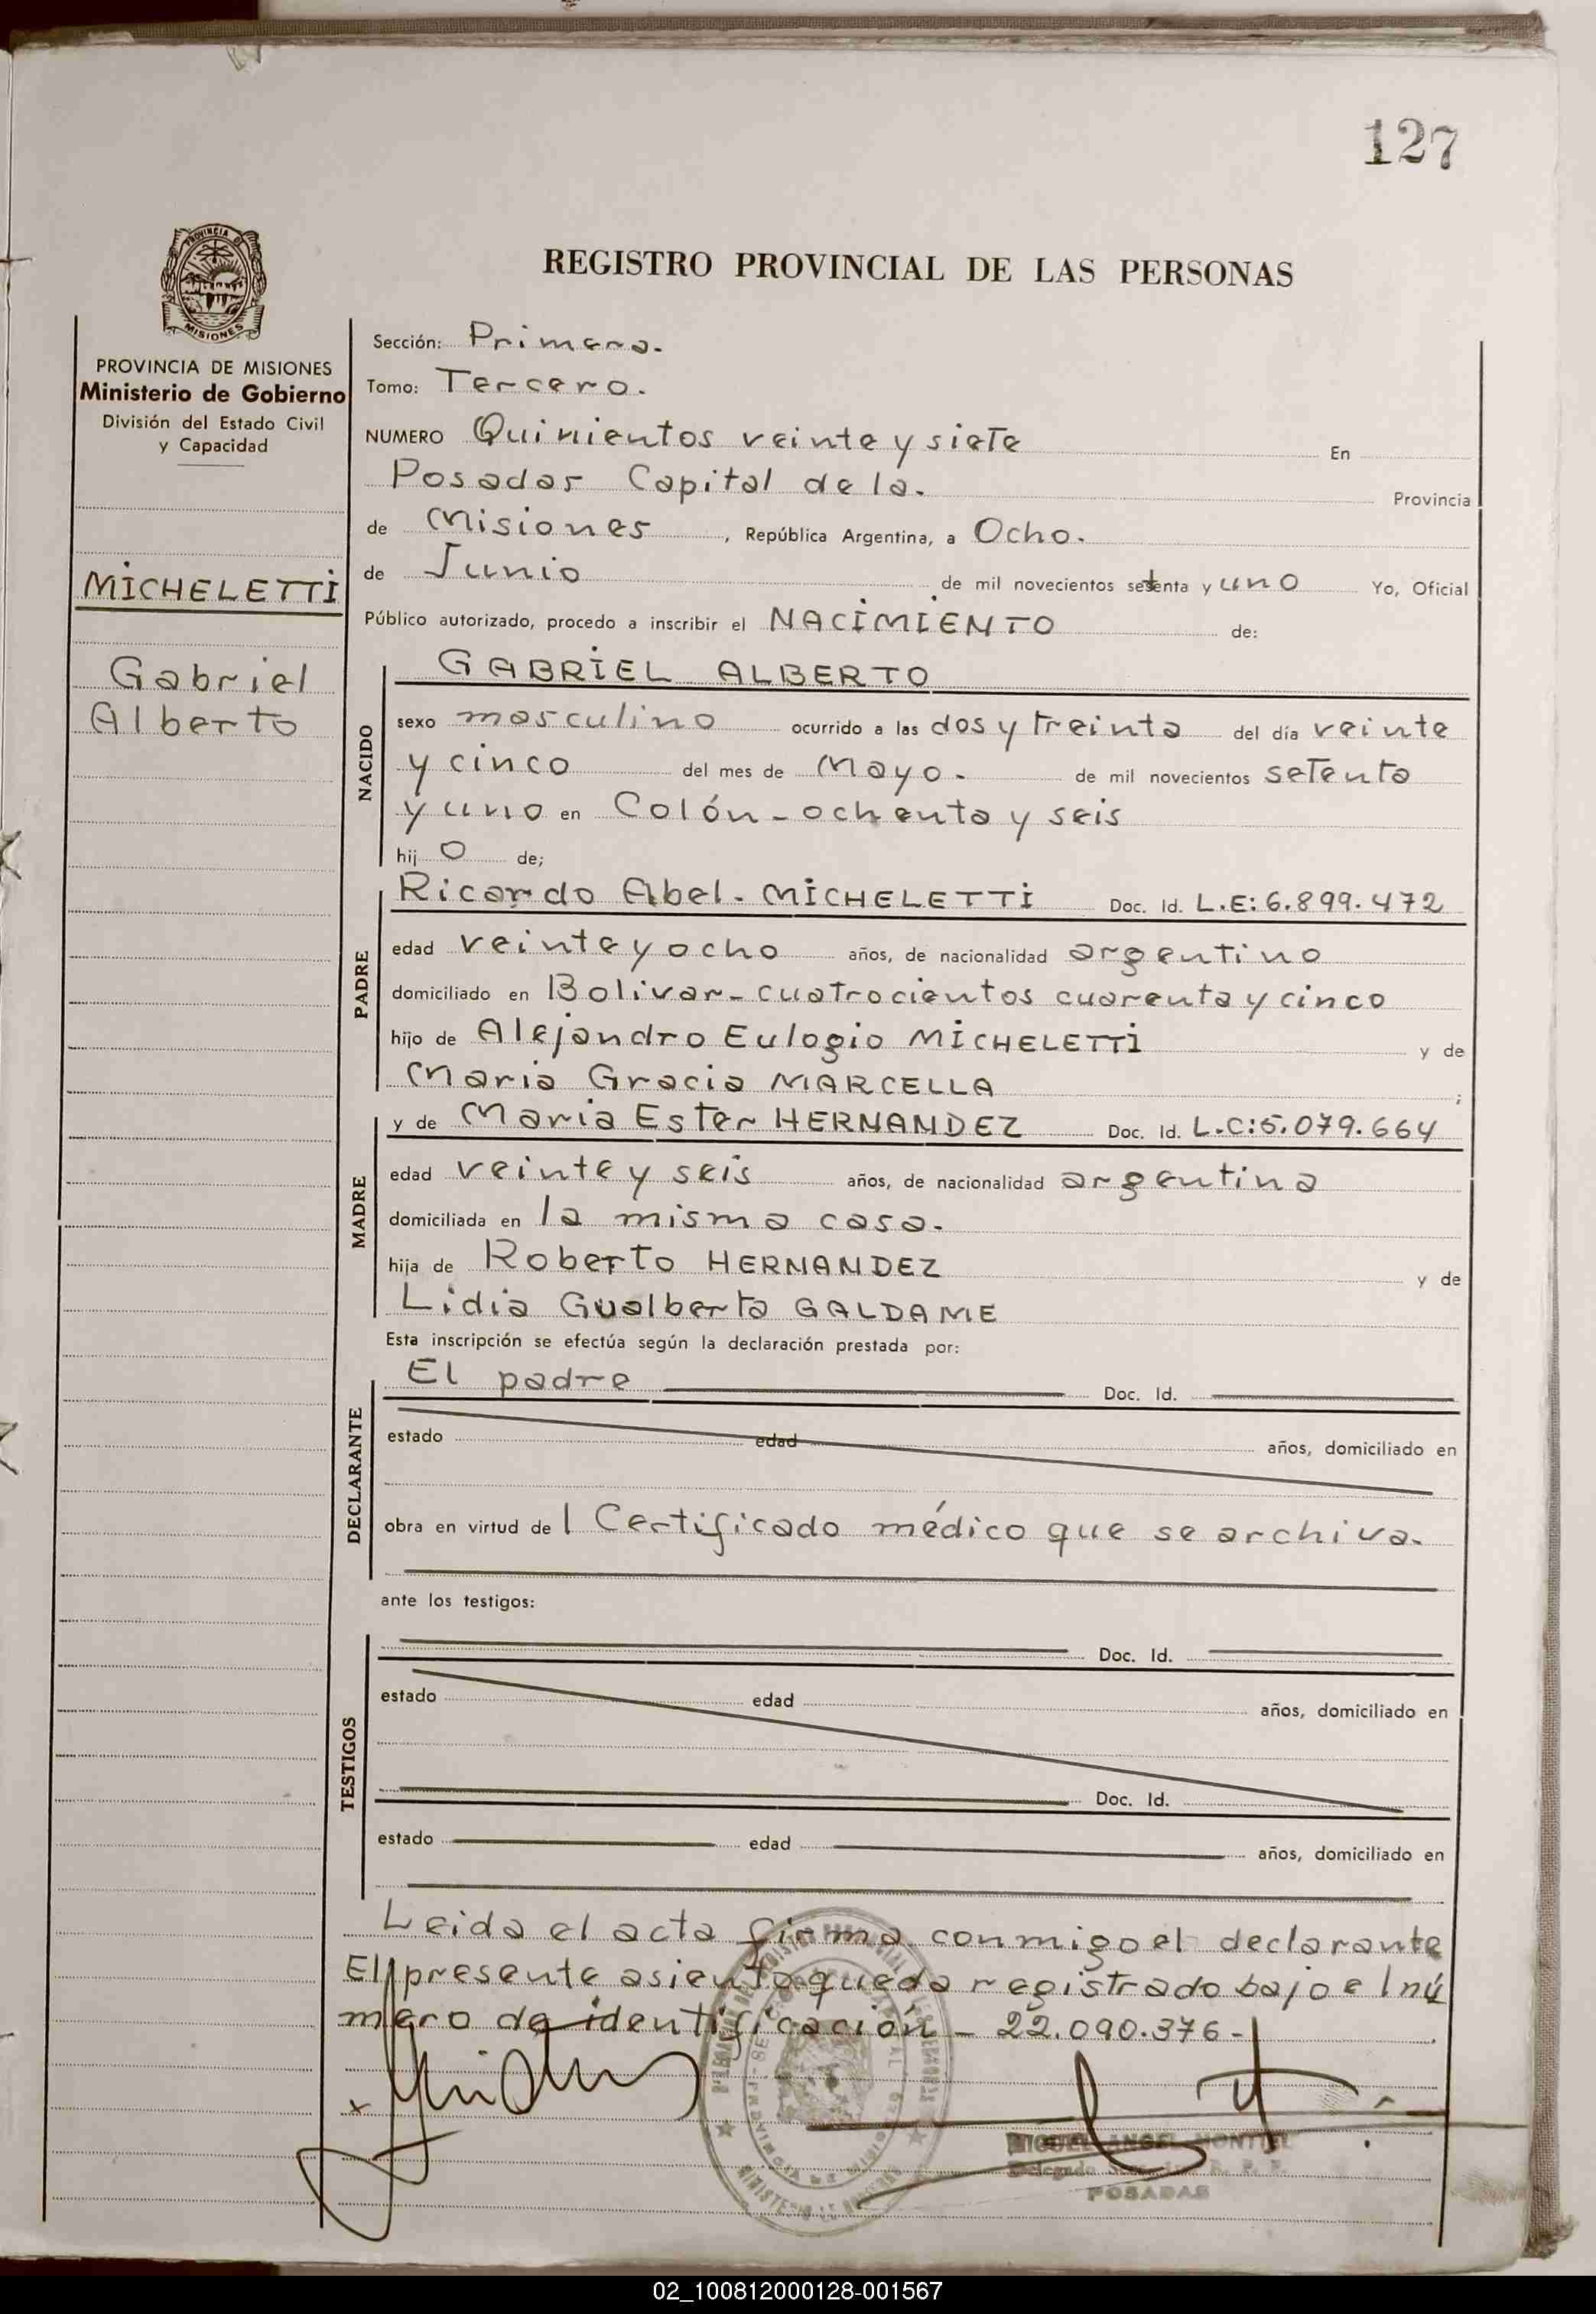 127
PROVINCIA DE
MISIONES
REGISTRO PROVINCIAL DE LAS PERSONAS
PROVINCIA DE MISIONES
Ministerio de Gobierno
División del Estado Civil
y Capacidad
MICHELETTI
Gabriel
Alberto
Sección: Primera.
Tomo: Tercero.
NUMERO Quinientos veinte y siete En
Posadas Capital de la. Provincia
de Misiones, República Argentina, a Ocho.
de Junio de mil novecientos setenta y uno Yo, Oficial
Público autorizado, procedo a inscribir el NACIMIENTO de:
GABRIEL ALBERTO
NACIDO
sexo masculino ocurrido a las dos y treinta del día veinte
y cinco del mes de Mayo. de mil novecientos setenta
y uno en Colón - ochenta y seis
hij o de;
PADRE
Ricardo Abel. MICHELETTI Doc. Id. L.E: 6.899.472
edad veinte y ocho años, de nacionalidad argentino
domiciliado en Bolivar - cuatrocientos cuarenta y cinco
hijo de Alejandro Eulogio MICHELETTI y de
Maria Gracia MARCELLA ;
MADRE
y de Maria Ester HERNANDEZ Doc. Id. L.C: 5.079.664
edad veinte y seis años, de nacionalidad argentina
domiciliada en la misma casa.
hija de Roberto HERNANDEZ y de
Lidia Gualberta GALDAME
Esta inscripción se efectúa según la declaración prestada por:
DECLARANTE
El padre Doc. Id.
estado edad años, domiciliado en
obra en virtud de l Certificado médico que se archiva.
ante los testigos:
TESTIGOS
Doc. Id.
estado edad años, domiciliado en
Doc. Id.
estado edad años, domiciliado en
Leida el acta firma conmigo el declarante
El presente asiento queda registrado bajo el nú
mero de identificación - 22.090.376 -
MIGUEL ANGEL MONTIEL
POSADAS
02_100812000128-001567